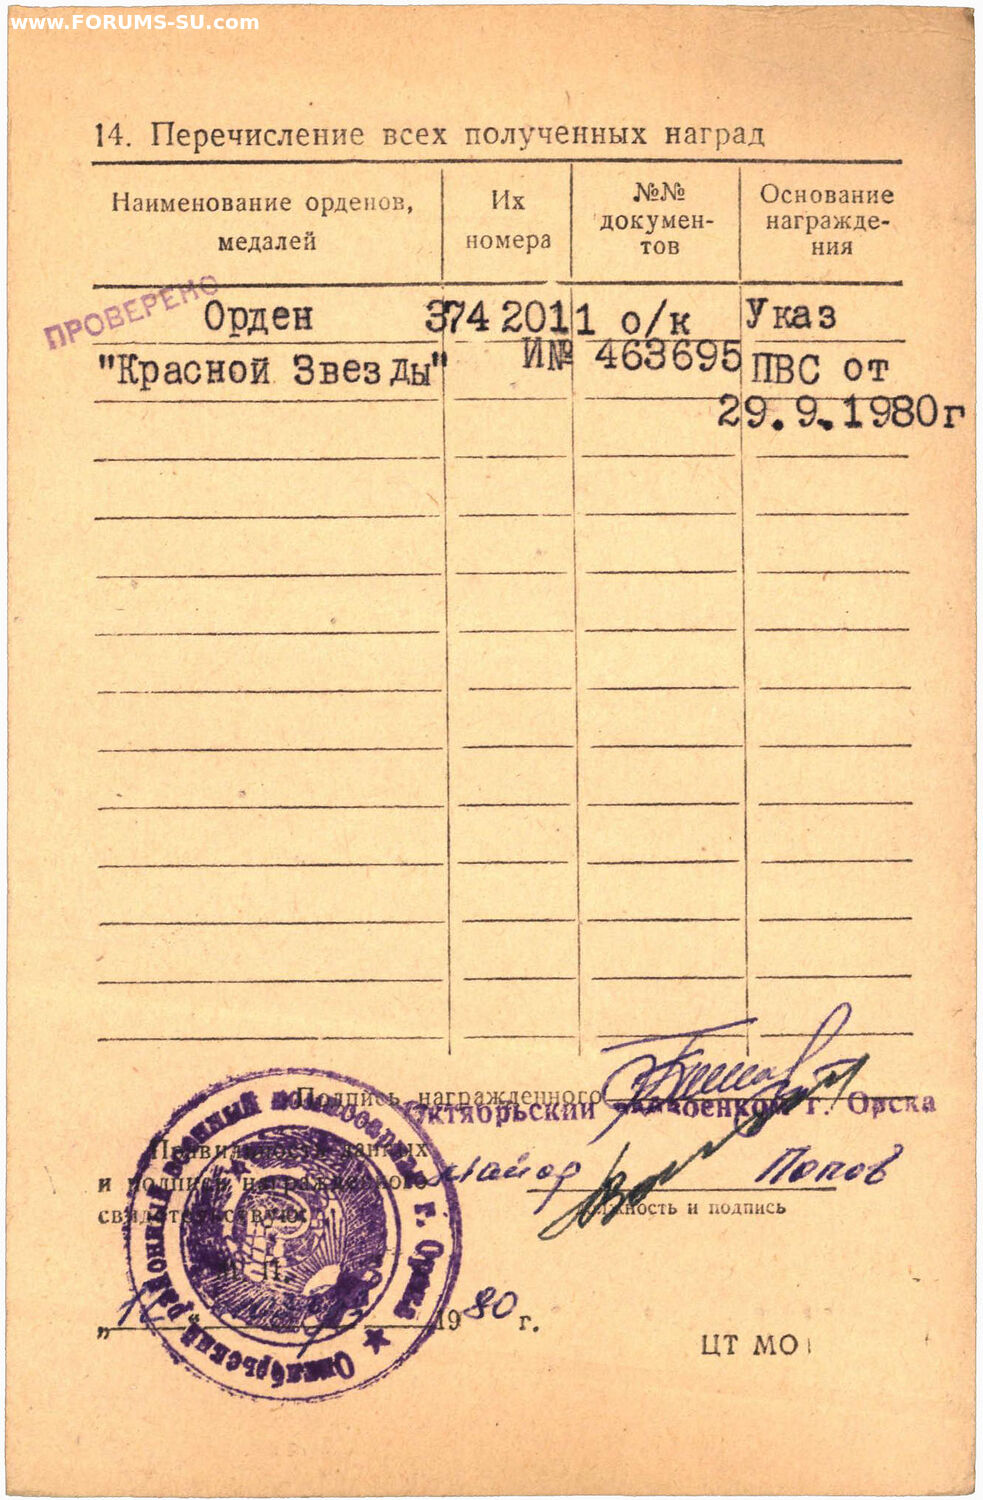 www.FORUMS-SU.com
14. Перечисление всех полученных наград
Наименование орденов, медалей
Их номера
№№ документов
Основание награждения
ПРОВЕРЕНО
Орден 3742011 о/к Указ
"Красной Звезды" И№ 463695 ПВС от
29.9.1980г
Подпись награжденного
Октябрьский райвоенком г. Орска
Правильность данных
и подписи награжденного майор Попов
свидетельствую должность и подпись
М. П.
Октябрьский районный военный комиссариат г. Орска
1980 г.
ЦТ МО